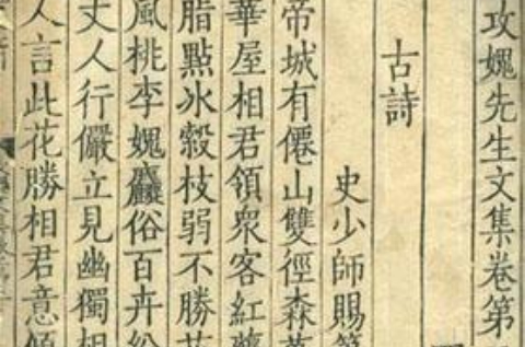 攻媿先生文集卷第
古詩
史少師賜
帝城有僊山雙徑森
華屋相君領衆客紅
脂點冰縠枝弱不勝花
風桃李媿麤俗百卉紛
丈人行儼立見幽獨相
人言此花勝相君意傾